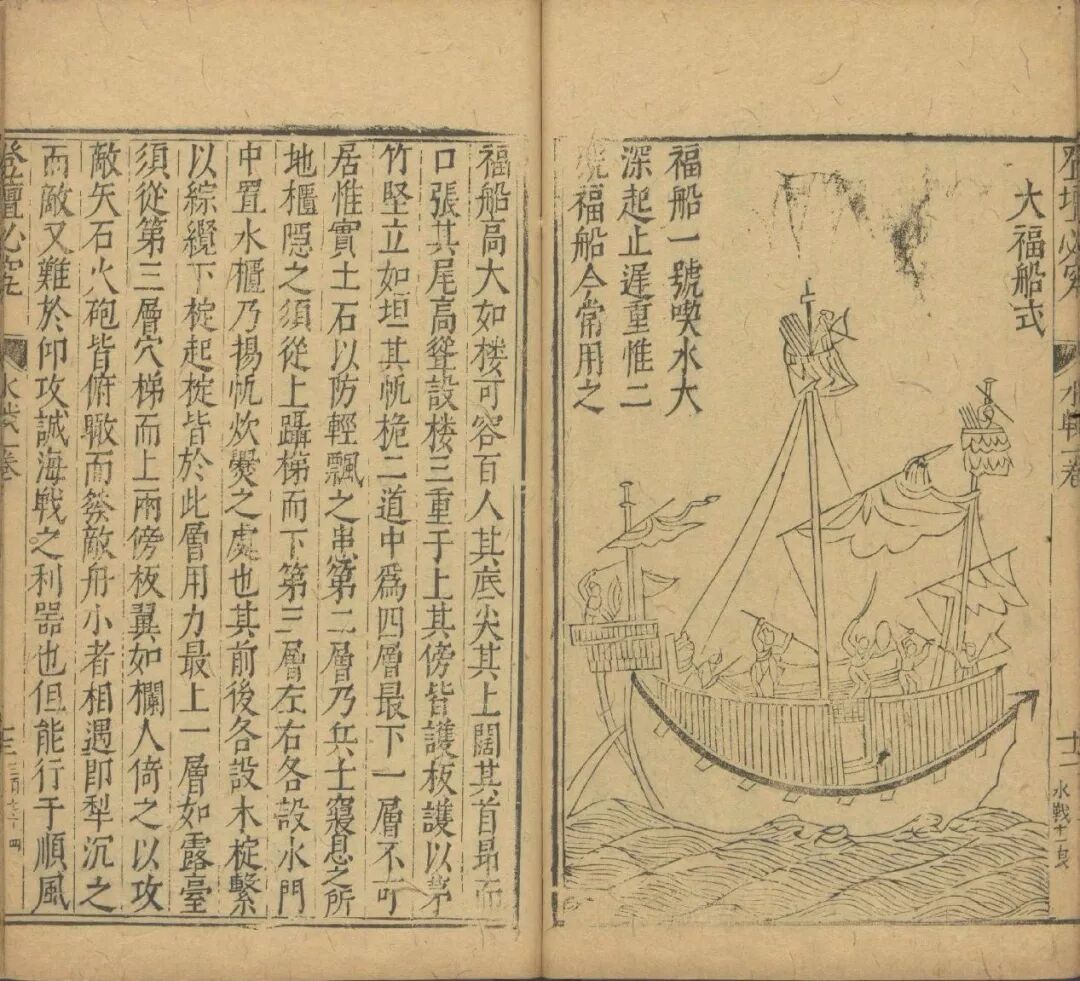 登壇必究 水戰一卷
水戰十一頁
大福船式
福船一號喫水大
深起止遲重惟二
號福船今常用之
福船高大如楼可容百人其底尖其上闊其首昂而
口張其尾高聳設楼三重于上其傍皆護板護以茅
竹堅立如垣其帆桅二道中爲四層最下一層不可
居惟實土石以防輕飄之患第二層乃兵士寢息之所
地櫃隱之須從上躡梯而下第三層左右各設水門
中置水櫃乃揚帆炊爨之處也其前後各設木椗繫
以綜纜下椗起椗皆於此層用力最上一層如露臺
須從第三層穴梯而上兩傍板翼如欄人倚之以攻
敵矢石火砲皆俯瞰而發敵舟小者相遇即犁沉之
而敵又難於仰攻誠海戰之利器也但能行于順風
登壇必究 水戰一卷
三百七十四